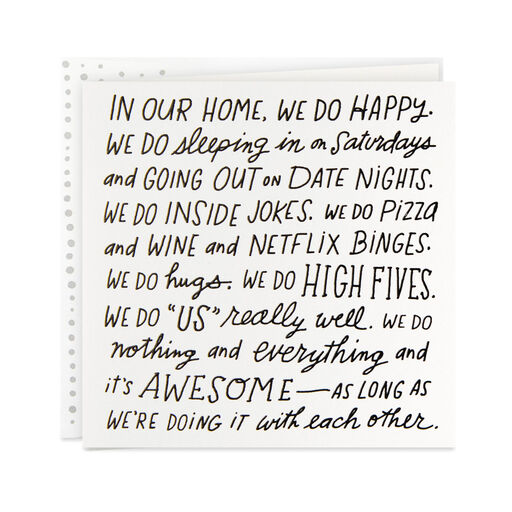 IN OUR HOME, WE DO HAPPY.
WE DO sleeping in on Saturdays
and GOING OUT ON DATE NIGHTS.
WE DO INSIDE JOKES. WE DO PIZZA
and WINE and NETFLIX BINGES.
WE DO hugs. WE DO HIGH FIVES.
WE DO "US" really well. WE DO
nothing and everything and
it's AWESOME—AS LONG AS
WE'RE DOING IT with each other.